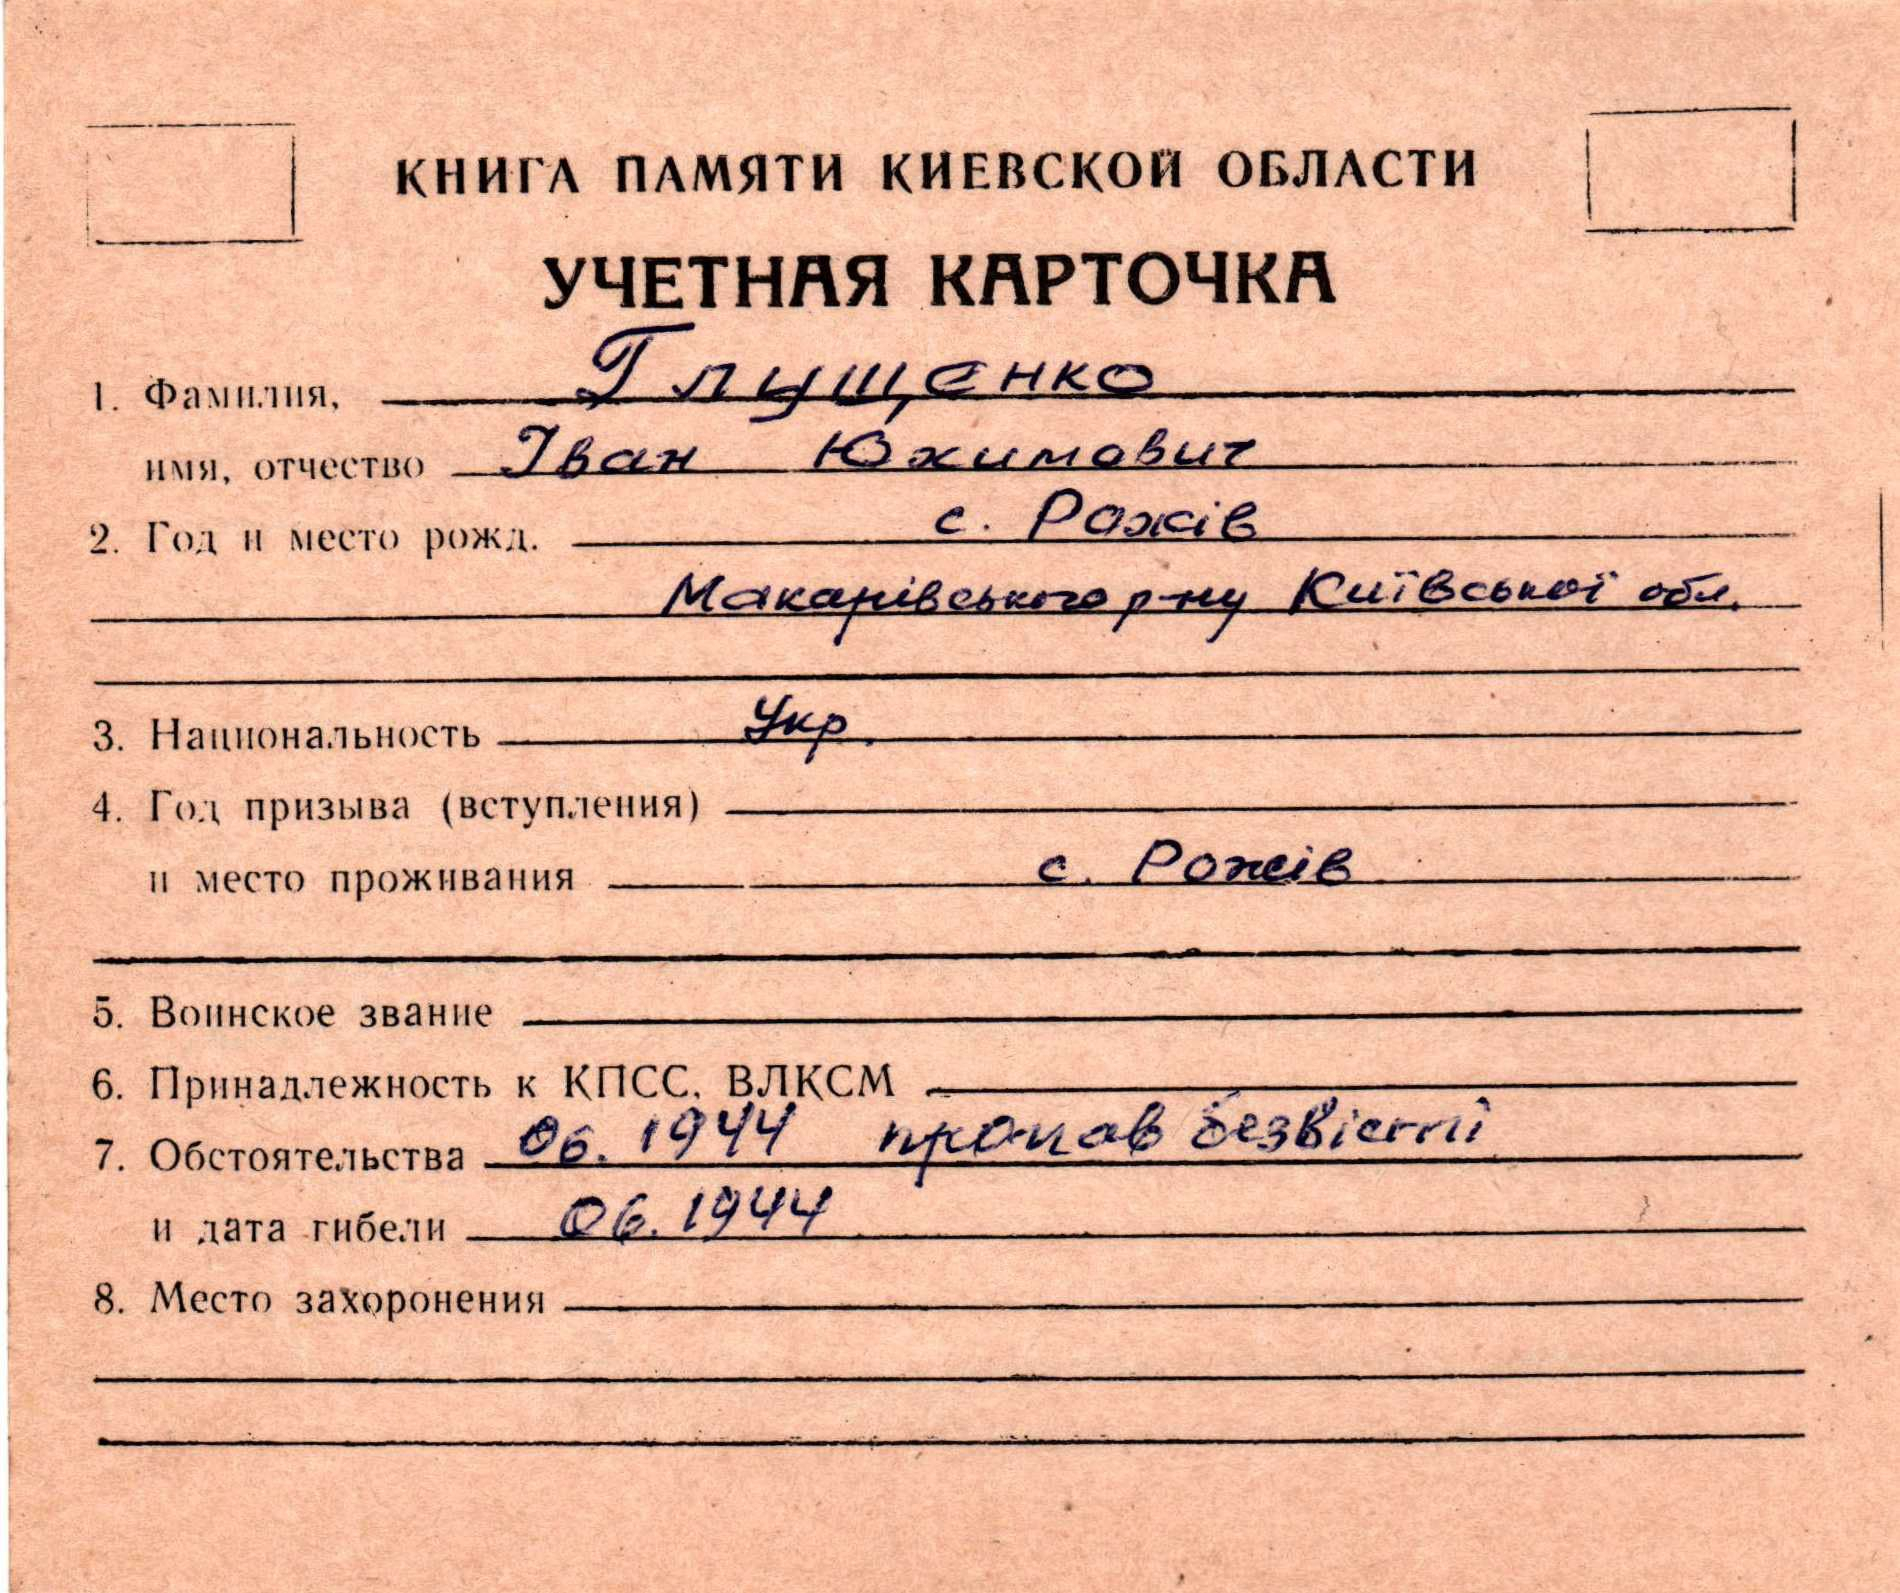 КНИГА ПАМЯТИ КИЕВСКОЙ ОБЛАСТИ
УЧЕТНАЯ КАРТОЧКА
1. Фамилия, Глущенко
имя, отчество Іван Юхимович
2. Год и место рожд. с. Рожів
Макарівського р-ну Київської обл.
3. Национальность Укр.
4. Год призыва (вступления)
и место проживания с. Рожів
5. Воинское звание
6. Принадлежность к КПСС, ВЛКСМ
7. Обстоятельства 06.1944 пропав безвісті
и дата гибели 06.1944
8. Место захоронения